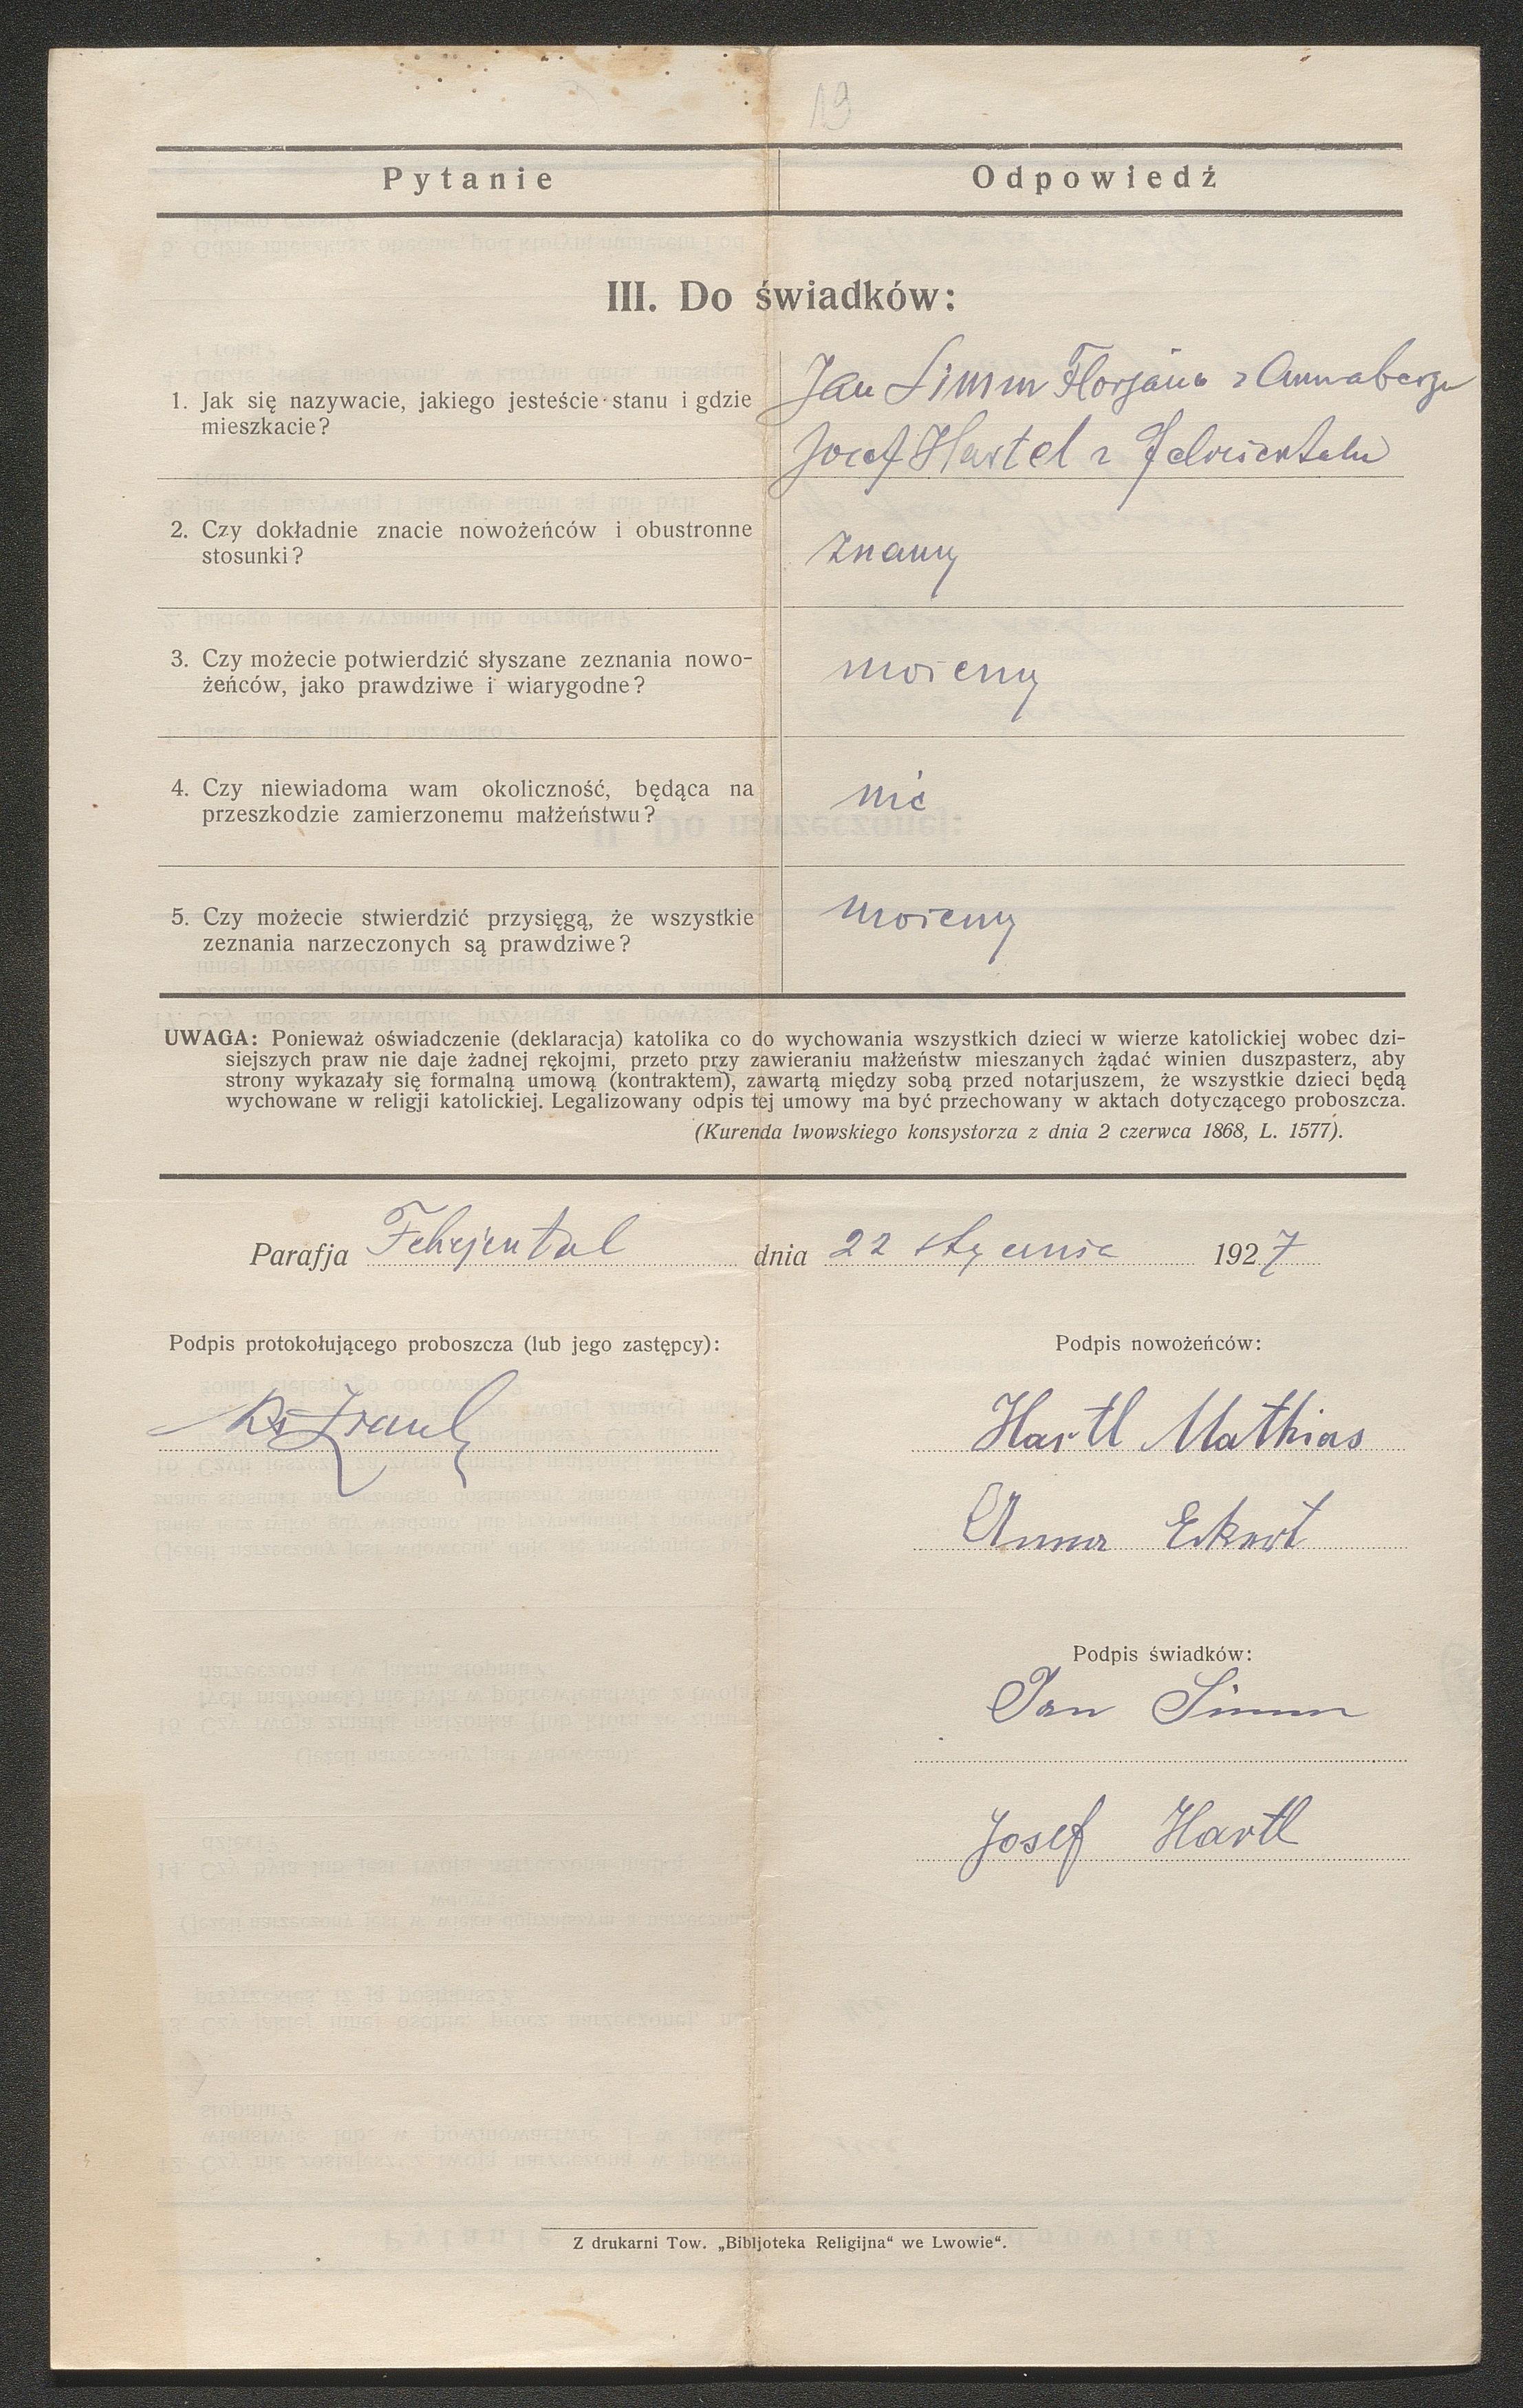 19
Pytanie Odpowiedź
III. Do świadków:
1. Jak się nazywacie, jakiego jesteście stanu i gdzie
mieszkacie?
Jan Simm Florjana z Annabergu
Josef Hartel z Felicientalu
2. Czy dokładnie znacie nowożeńców i obustronne
stosunki?
znamy
3. Czy możecie potwierdzić słyszane zeznania nowo-
żeńców, jako prawdziwe i wiarygodne?
możemy
4. Czy niewiadoma wam okoliczność, będąca na
przeszkodzie zamierzonemu małżeństwu?
nie
5. Czy możecie stwierdzić przysięgą, że wszystkie
zeznania narzeczonych są prawdziwe?
możemy
UWAGA: Ponieważ oświadczenie (deklaracja) katolika co do wychowania wszystkich dzieci w wierze katolickiej wobec dzi-
siejszych praw nie daje żadnej rękojmi, przeto przy zawieraniu małżeństw mieszanych żądać winien duszpasterz, aby
strony wykazały się formalną umową (kontraktem), zawartą między sobą przed notarjuszem, że wszystkie dzieci będą
wychowane w religji katolickiej. Legalizowany odpis tej umowy ma być przechowany w aktach dotyczącego proboszcza.
(Kurenda lwowskiego konsystorza z dnia 2 czerwca 1868, L. 1577).
Parafja dnia 22 stycznia 1927
Podpis protokołującego proboszcza (lub jego zastępcy): Podpis nowożeńców:
Hartl Mathias
Anna Eckert
Podpis świadków:
Jan Simm
Josef Hartl
Z drukarni Tow. „Bibljoteka Religijna“ we Lwowie“.